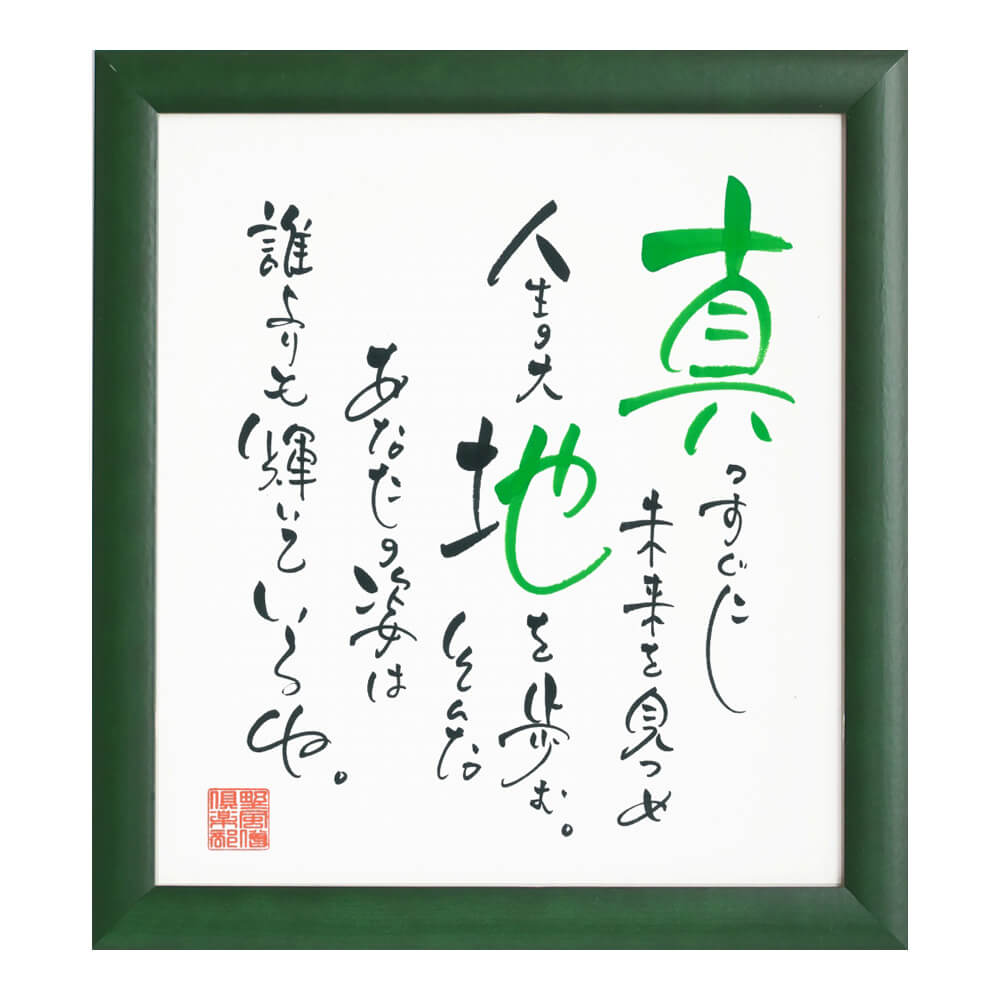 真っすぐに
未来を見つめ
人生の大地を歩む。
そんな
あなたの姿は
誰よりも輝いているね。
野風僧
倶楽部